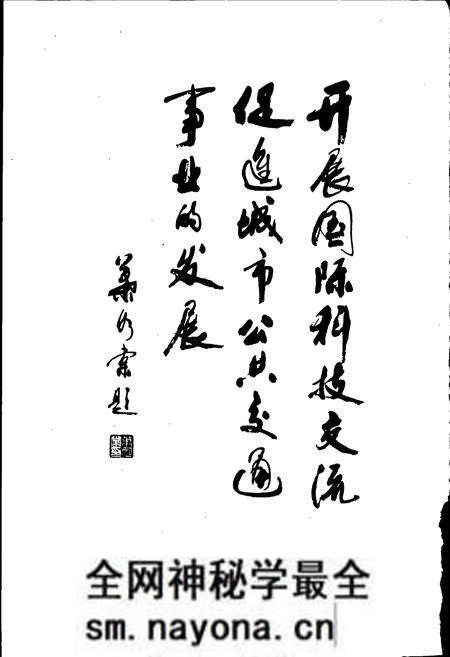 开展国际科技交流
促進城市公共交通
事业的发展
题
全网神秘学最全
sm.nayona.cn